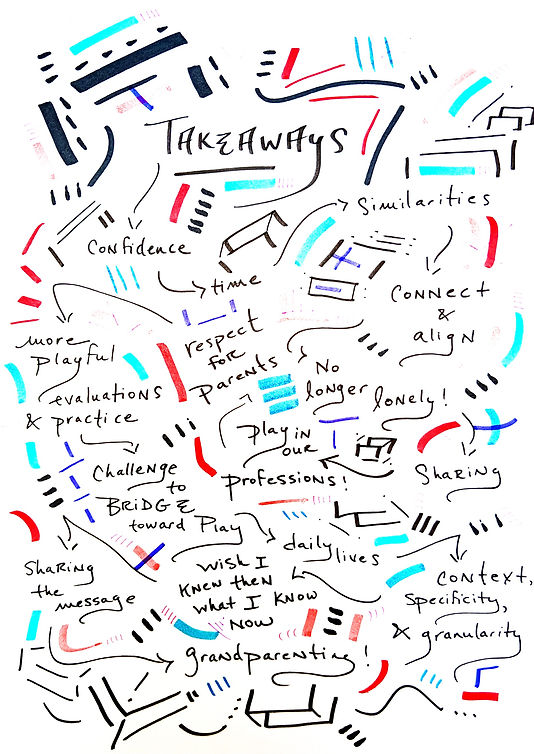 TAKEAWAYS
Confidence
time
Similarities
CONNECT
&
align
No
longer
lonely!
SHARING
play in
our
professions!
respect
for
parents
more
playful
evaluations
& practice
Challenge
to
BRIDGE
toward Play
daily
lives
context,
specificity,
& granularity
wish I
knew then
what I know
now
SHARING
the
message
grandparenting!